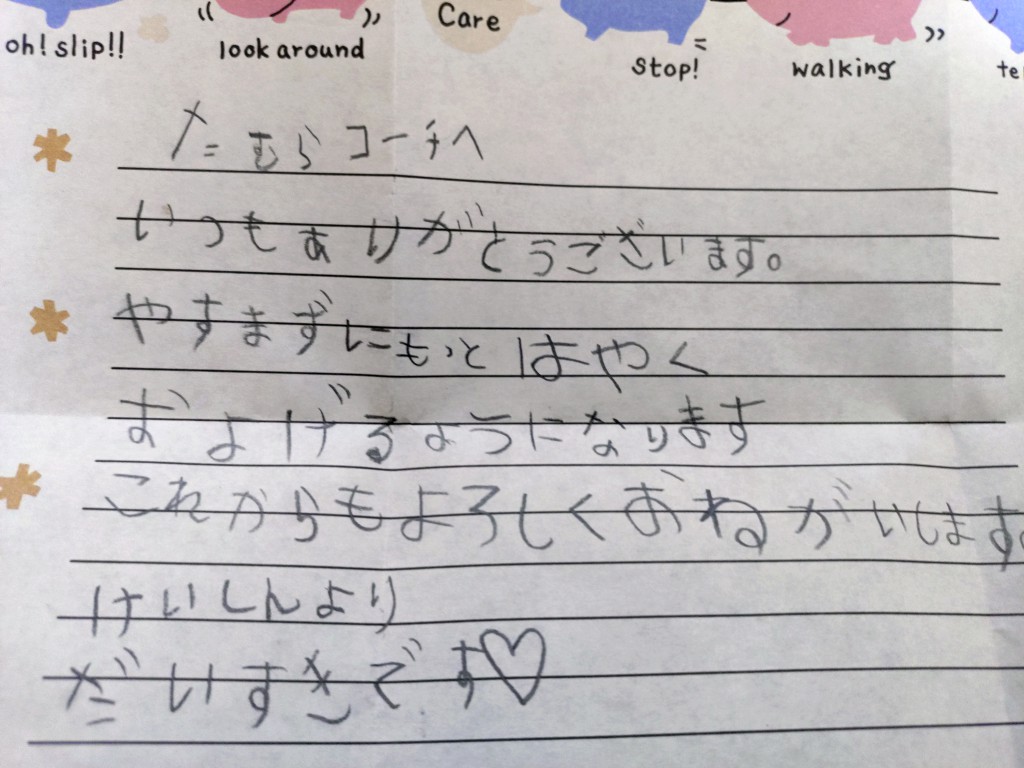 Care
oh! slip!! look around stop! walking
たむらコーチへ
いつもありがとうございます。
やすまずにもっとはやく
およげるようになります
これからもよろしくおねがいします。
けいしんより
だいすきです♡